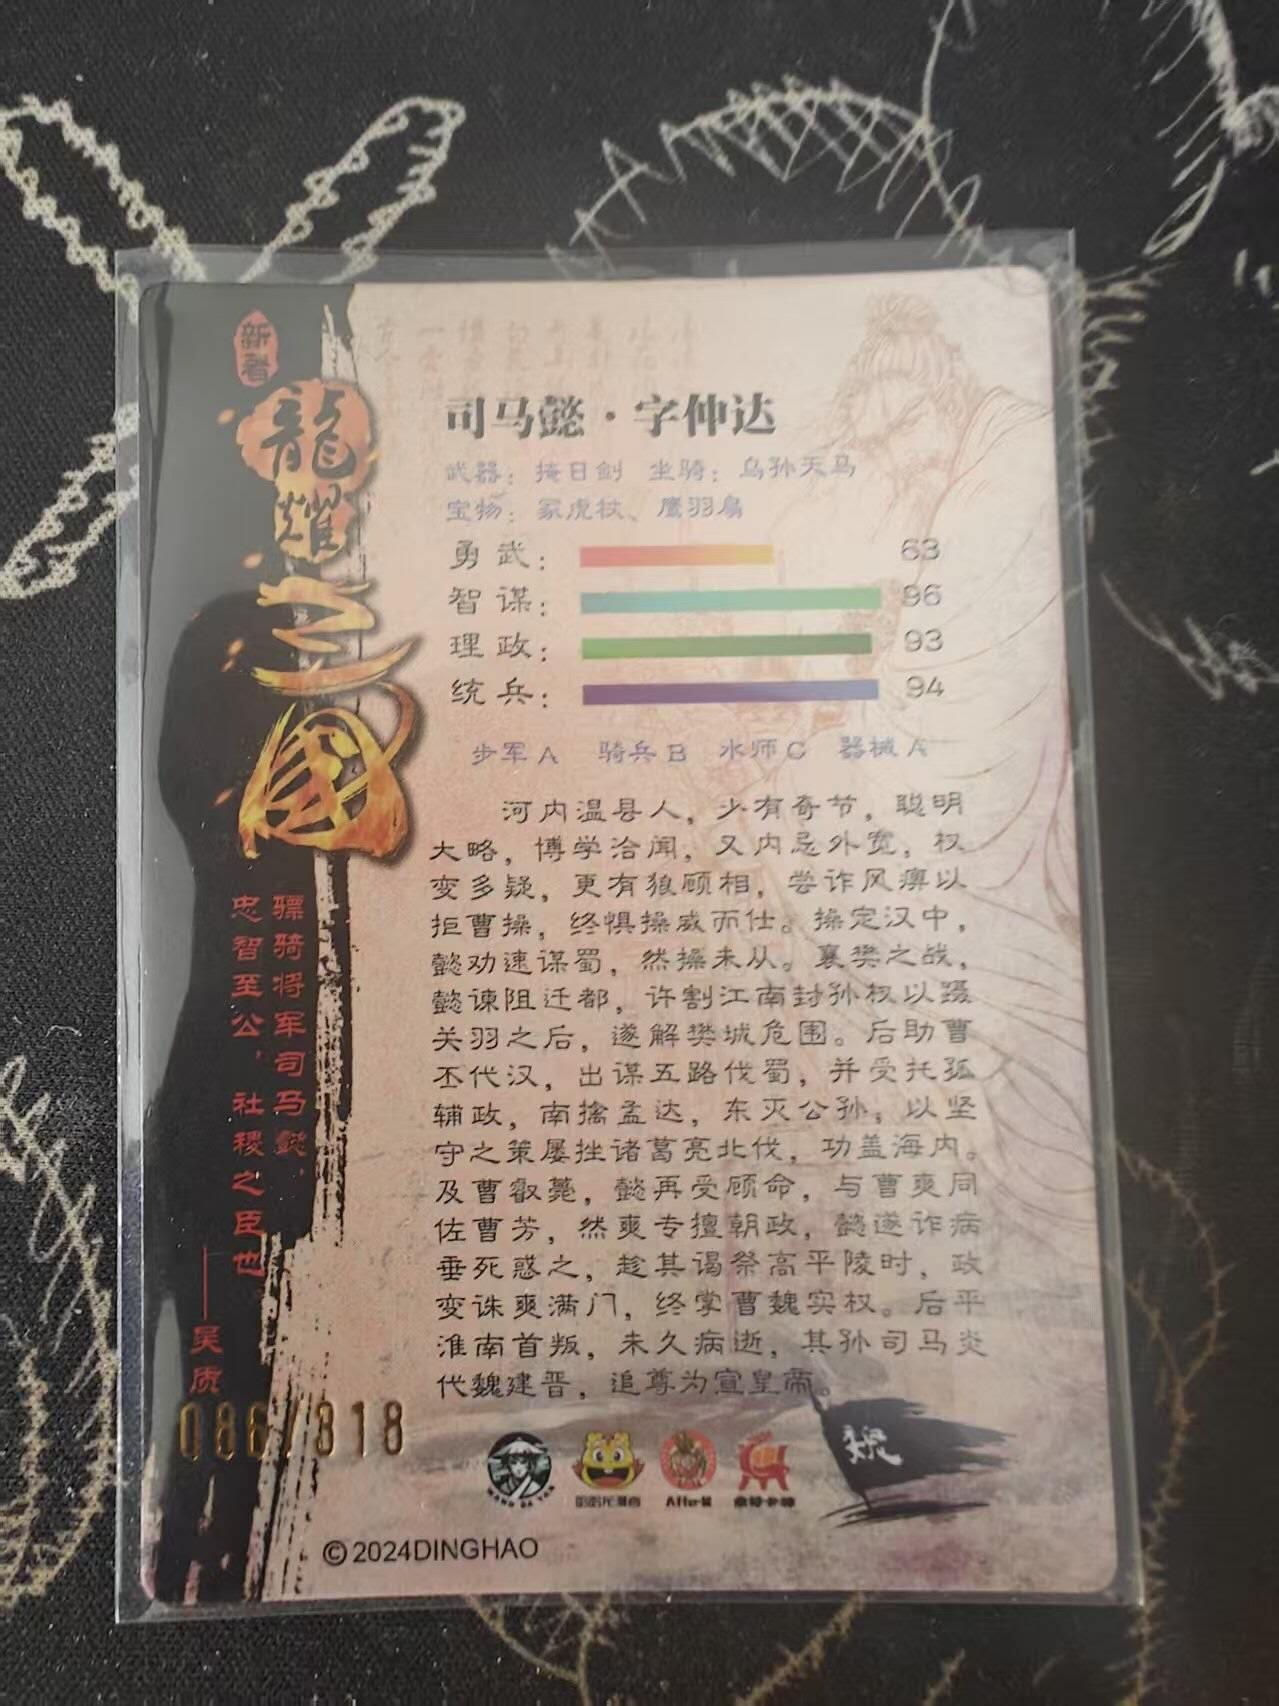 新著
龍耀三國
骠骑将军司马懿，
忠智至公，社稷之臣也
——吴质
086/318
司马懿·字仲达
武器：掩日剑 坐骑：乌孙天马
宝物：冢虎杖、鹰羽扇
勇武： 63
智谋： 96
理政： 93
统兵： 94
步军A 骑兵B 水师C 器械A
河内温县人，少有奇节，聪明
大略，博学洽闻，又内忌外宽，权
变多疑，更有狼顾相，尝诈风痹以
拒曹操，终惧操威而仕。操定汉中，
懿劝速谋蜀，然操未从。襄樊之战，
懿谏阻迁都，许割江南封孙权以蹑
关羽之后，遂解樊城危围。后助曹
丕代汉，出谋五路伐蜀，并受托孤
辅政，南擒孟达，东灭公孙，以坚
守之策屡挫诸葛亮北伐，功盖海内。
及曹叡薨，懿再受顾命，与曹爽同
佐曹芳，然爽专擅朝政，懿遂诈病
垂死惑之，趁其谒祭高平陵时，政
变诛爽满门，终掌曹魏实权。后平
淮南首叛，未久病逝，其孙司马炎
代魏建晋，追尊为宣皇帝。
魏
©2024DINGHAO